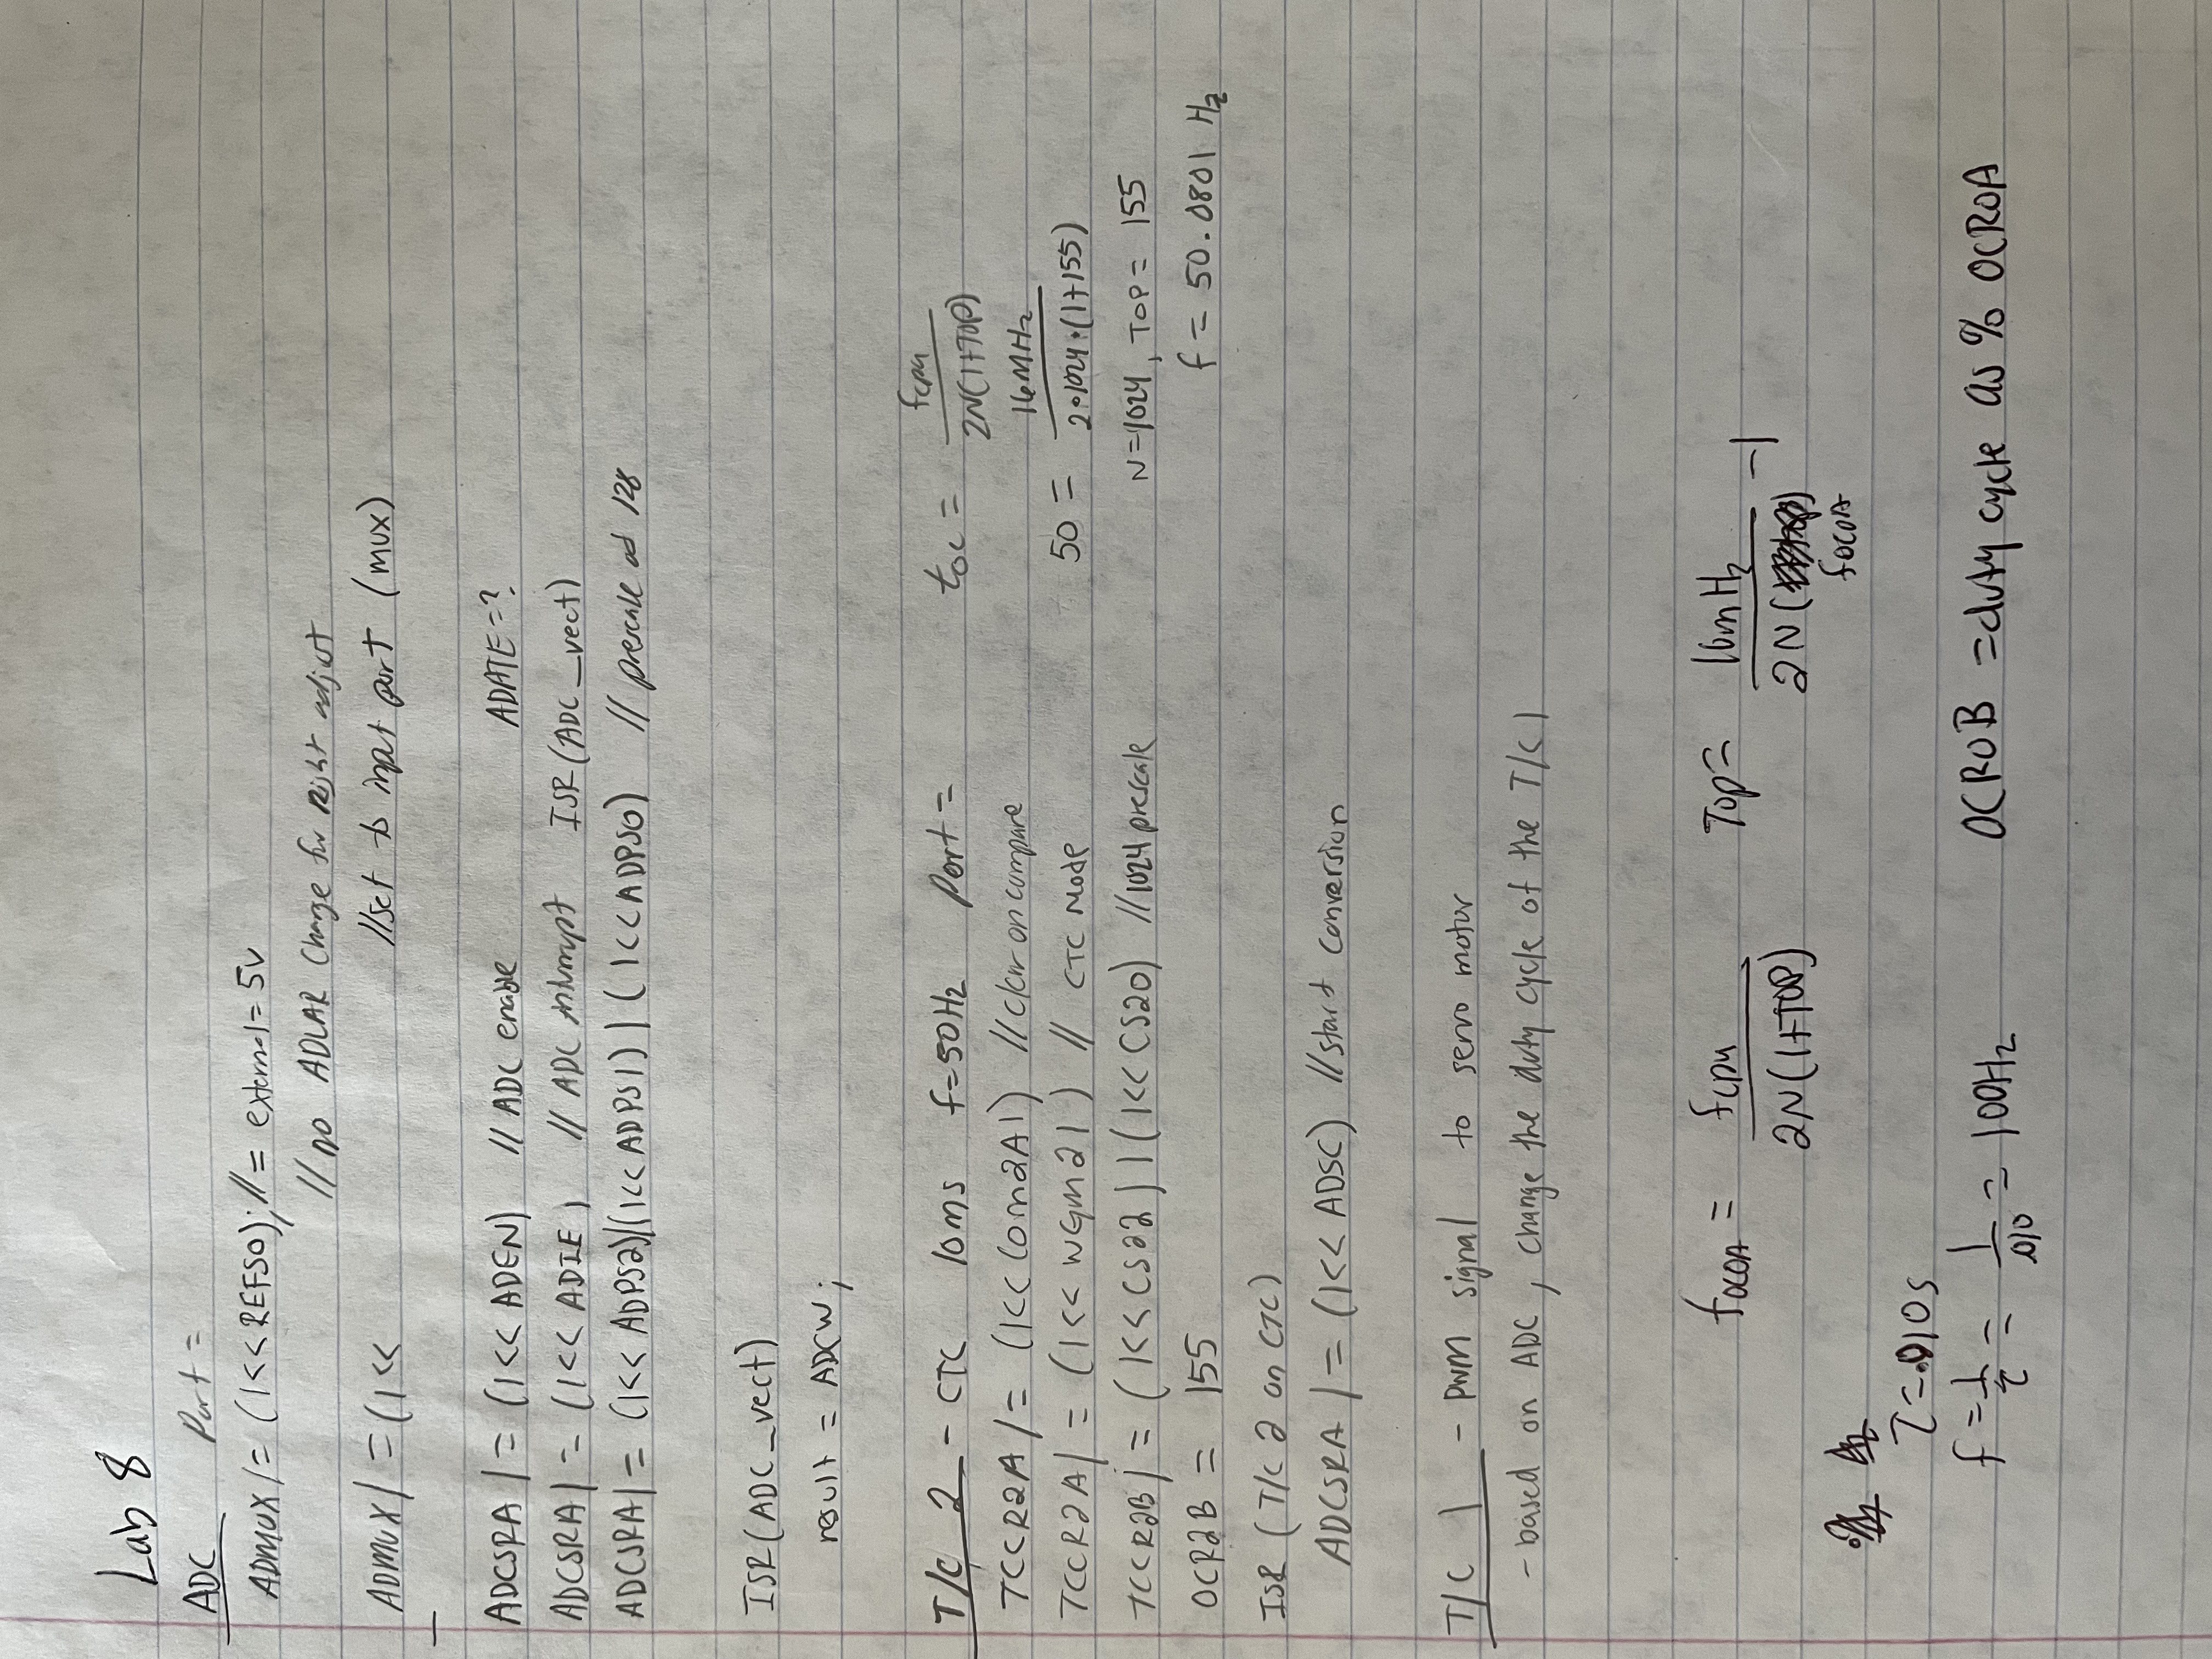 Lab 8
ADC Port =
ADMUX |= (1<<REFS0); //= external = 5v
//no ADLAR Change for Right adjust
ADMUX |= (1<< //set to input port (mux)
ADCSRA |= (1<< ADEN) // ADC enable ADATE=?
ADCSRA |= (1<< ADIE) // ADC Interrupt ISR(ADC_vect)
ADCSRA |= (1<< ADPS2)|(1<<ADPS1) | (1<<ADPS0) // prescale 128
ISR(ADC_vect)
result = ADCW;
T/C 2 - CTC 10ms f=50Hz Port =
TCCR2A |= (1<< COM2A1) //clear on compare
TCCR2A |= (1<< WGM21) // CTC Mode
TCCR2B |= (1<<CS22) | (1<< CS20) //1024 prescale
OCR2B = 155
ISR (T/C 2 on CTC)
ADCSRA |= (1<< ADSC) //start conversion
toc = fcpu / 2N(1+TOP)
50 = 16MHz / 2•1024•(1+155)
N=1024, TOP= 155
f = 50.0801 Hz
T/C 1 - PWM signal to servo motor
- based on ADC, change the duty cycle of the T/C 1
fOCOA = fcpu / 2N(1+TOP) Top= 16mHz / 2N( ) fOCOA -1
T=.010s
f = 1/T = 1/.010 = 100Hz OCR0B = duty cycle as % OCR0A